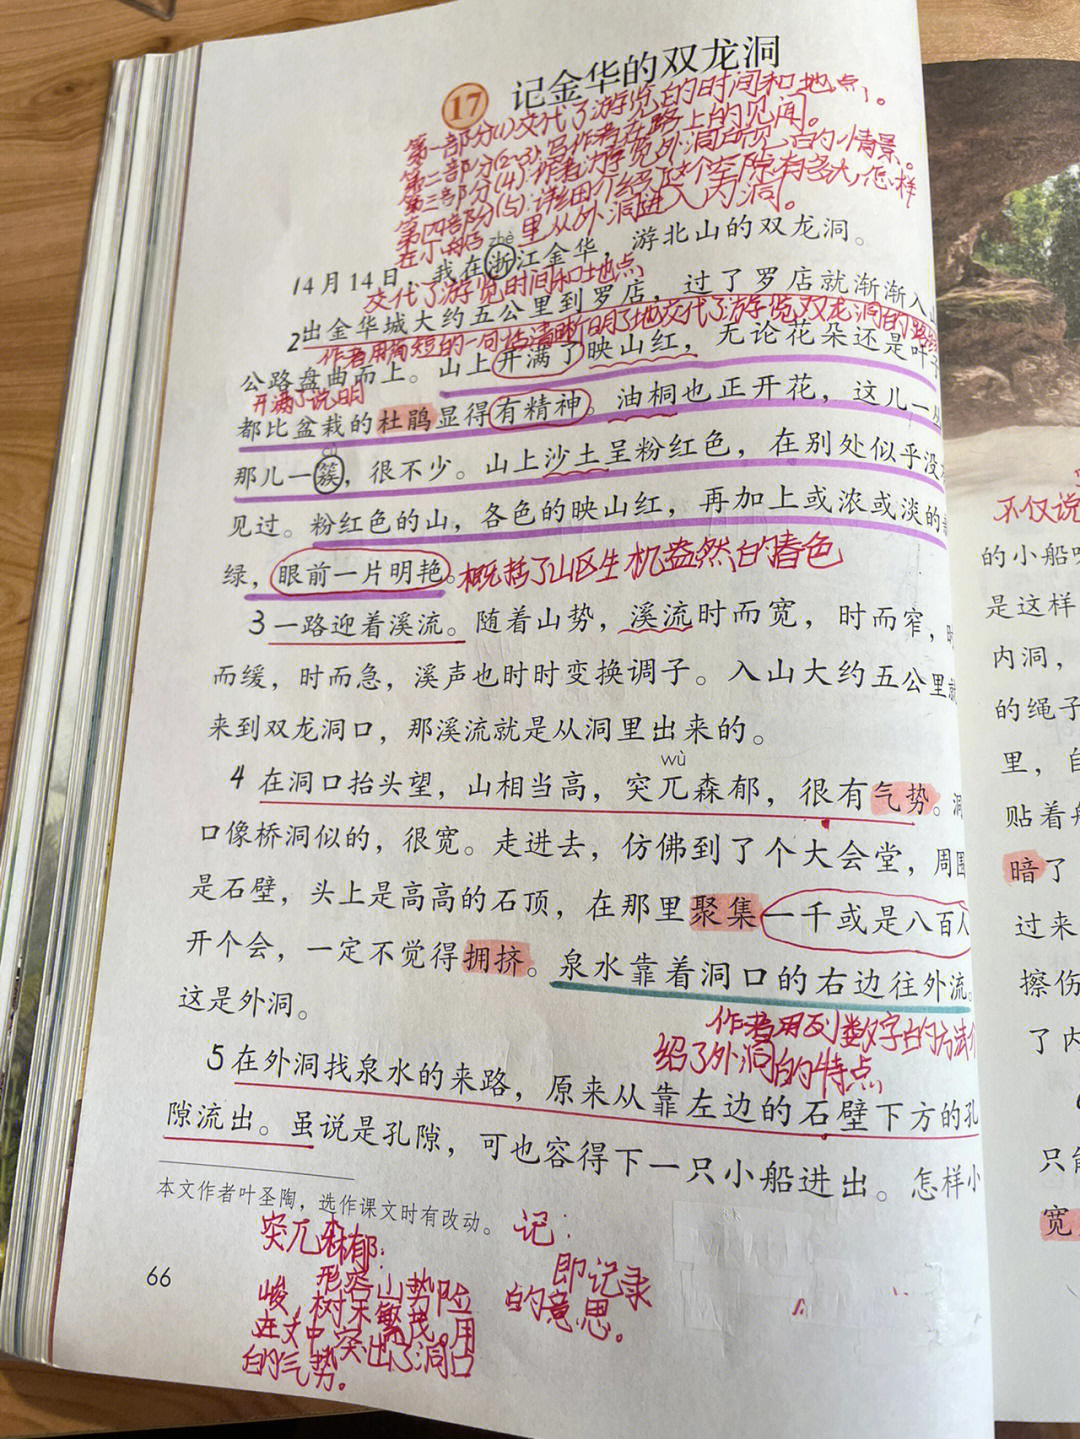 17 记金华的双龙洞
第一部分(1)交代了游览的时间和地点。
第二部分(2-3):写作者在路上的见闻。
第三部分(4):作者游览外洞所见的情景。
第四部分(5):详细介绍了这个空隙有多大,怎样
在小船里从外洞进入内洞。
zhè
1 4月14日,我在浙江金华,游北山的双龙洞。
交代了游览时间和地点
2 出金华城大约五公里到罗店,过了罗店就渐渐入山
作者用简短的一句话清晰明了地交代了游览双龙洞的路线
公路盘曲而上。山上开满了映山红,无论花朵还是叶子
开满了说明
都比盆栽的杜鹃显得有精神。油桐也正开花,这儿一丛
cù
那儿一簇,很不少。山上沙土呈粉红色,在别处似乎没有
见过。粉红色的山,各色的映山红,再加上或浓或淡的新
绿,眼前一片明艳。
概括了山区生机盎然的春色
3 一路迎着溪流。随着山势,溪流时而宽,时而窄,时
而缓,时而急,溪声也时时变换调子。入山大约五公里就
来到双龙洞口,那溪流就是从洞里出来的。
wù
4 在洞口抬头望,山相当高,突兀森郁,很有气势。洞
口像桥洞似的,很宽。走进去,仿佛到了个大会堂,周围
是石壁,头上是高高的石顶,在那里聚集一千或是八百人
开个会,一定不觉得拥挤。泉水靠着洞口的右边往外流。
这是外洞。
作者用列数字的方法介
绍了外洞的特点
5 在外洞找泉水的来路,原来从靠左边的石壁下方的孔
隙流出。虽说是孔隙,可也容得下一只小船进出。怎样小
本文作者叶圣陶,选作课文时有改动。
突兀森郁:
形容山势险
峻,树木繁茂。用
在文中突出了洞口
的气势。
记:
即记录
的意思。
66
不仅说
的小船
是这样
内洞,
的绳子
里,自
贴着船
暗了
过来
擦伤
了内
只能
宽